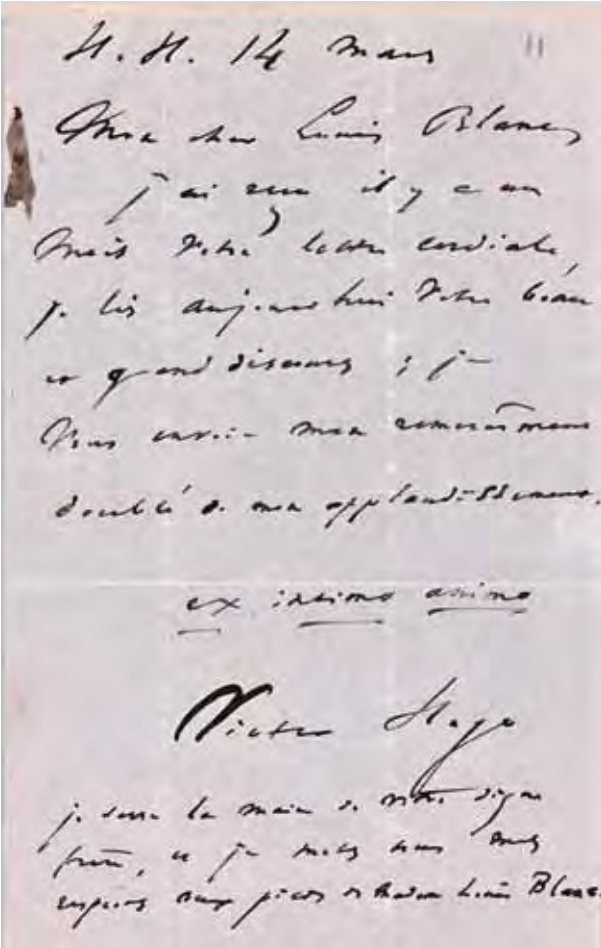 H. H. 14 mars
11
Mon cher Louis Blanc,
j'ai reçu il y a un
mois votre lettre cordiale,
je lis aujourd'hui votre beau
et grand discours ; je
vous envoie mon remerciement
doublé de mon applaudissement.
ex intimo animo
Victor Hugo
je serre la main de votre digne
frère, et je mets tous mes
respects aux pieds de Madame Louis Blanc.